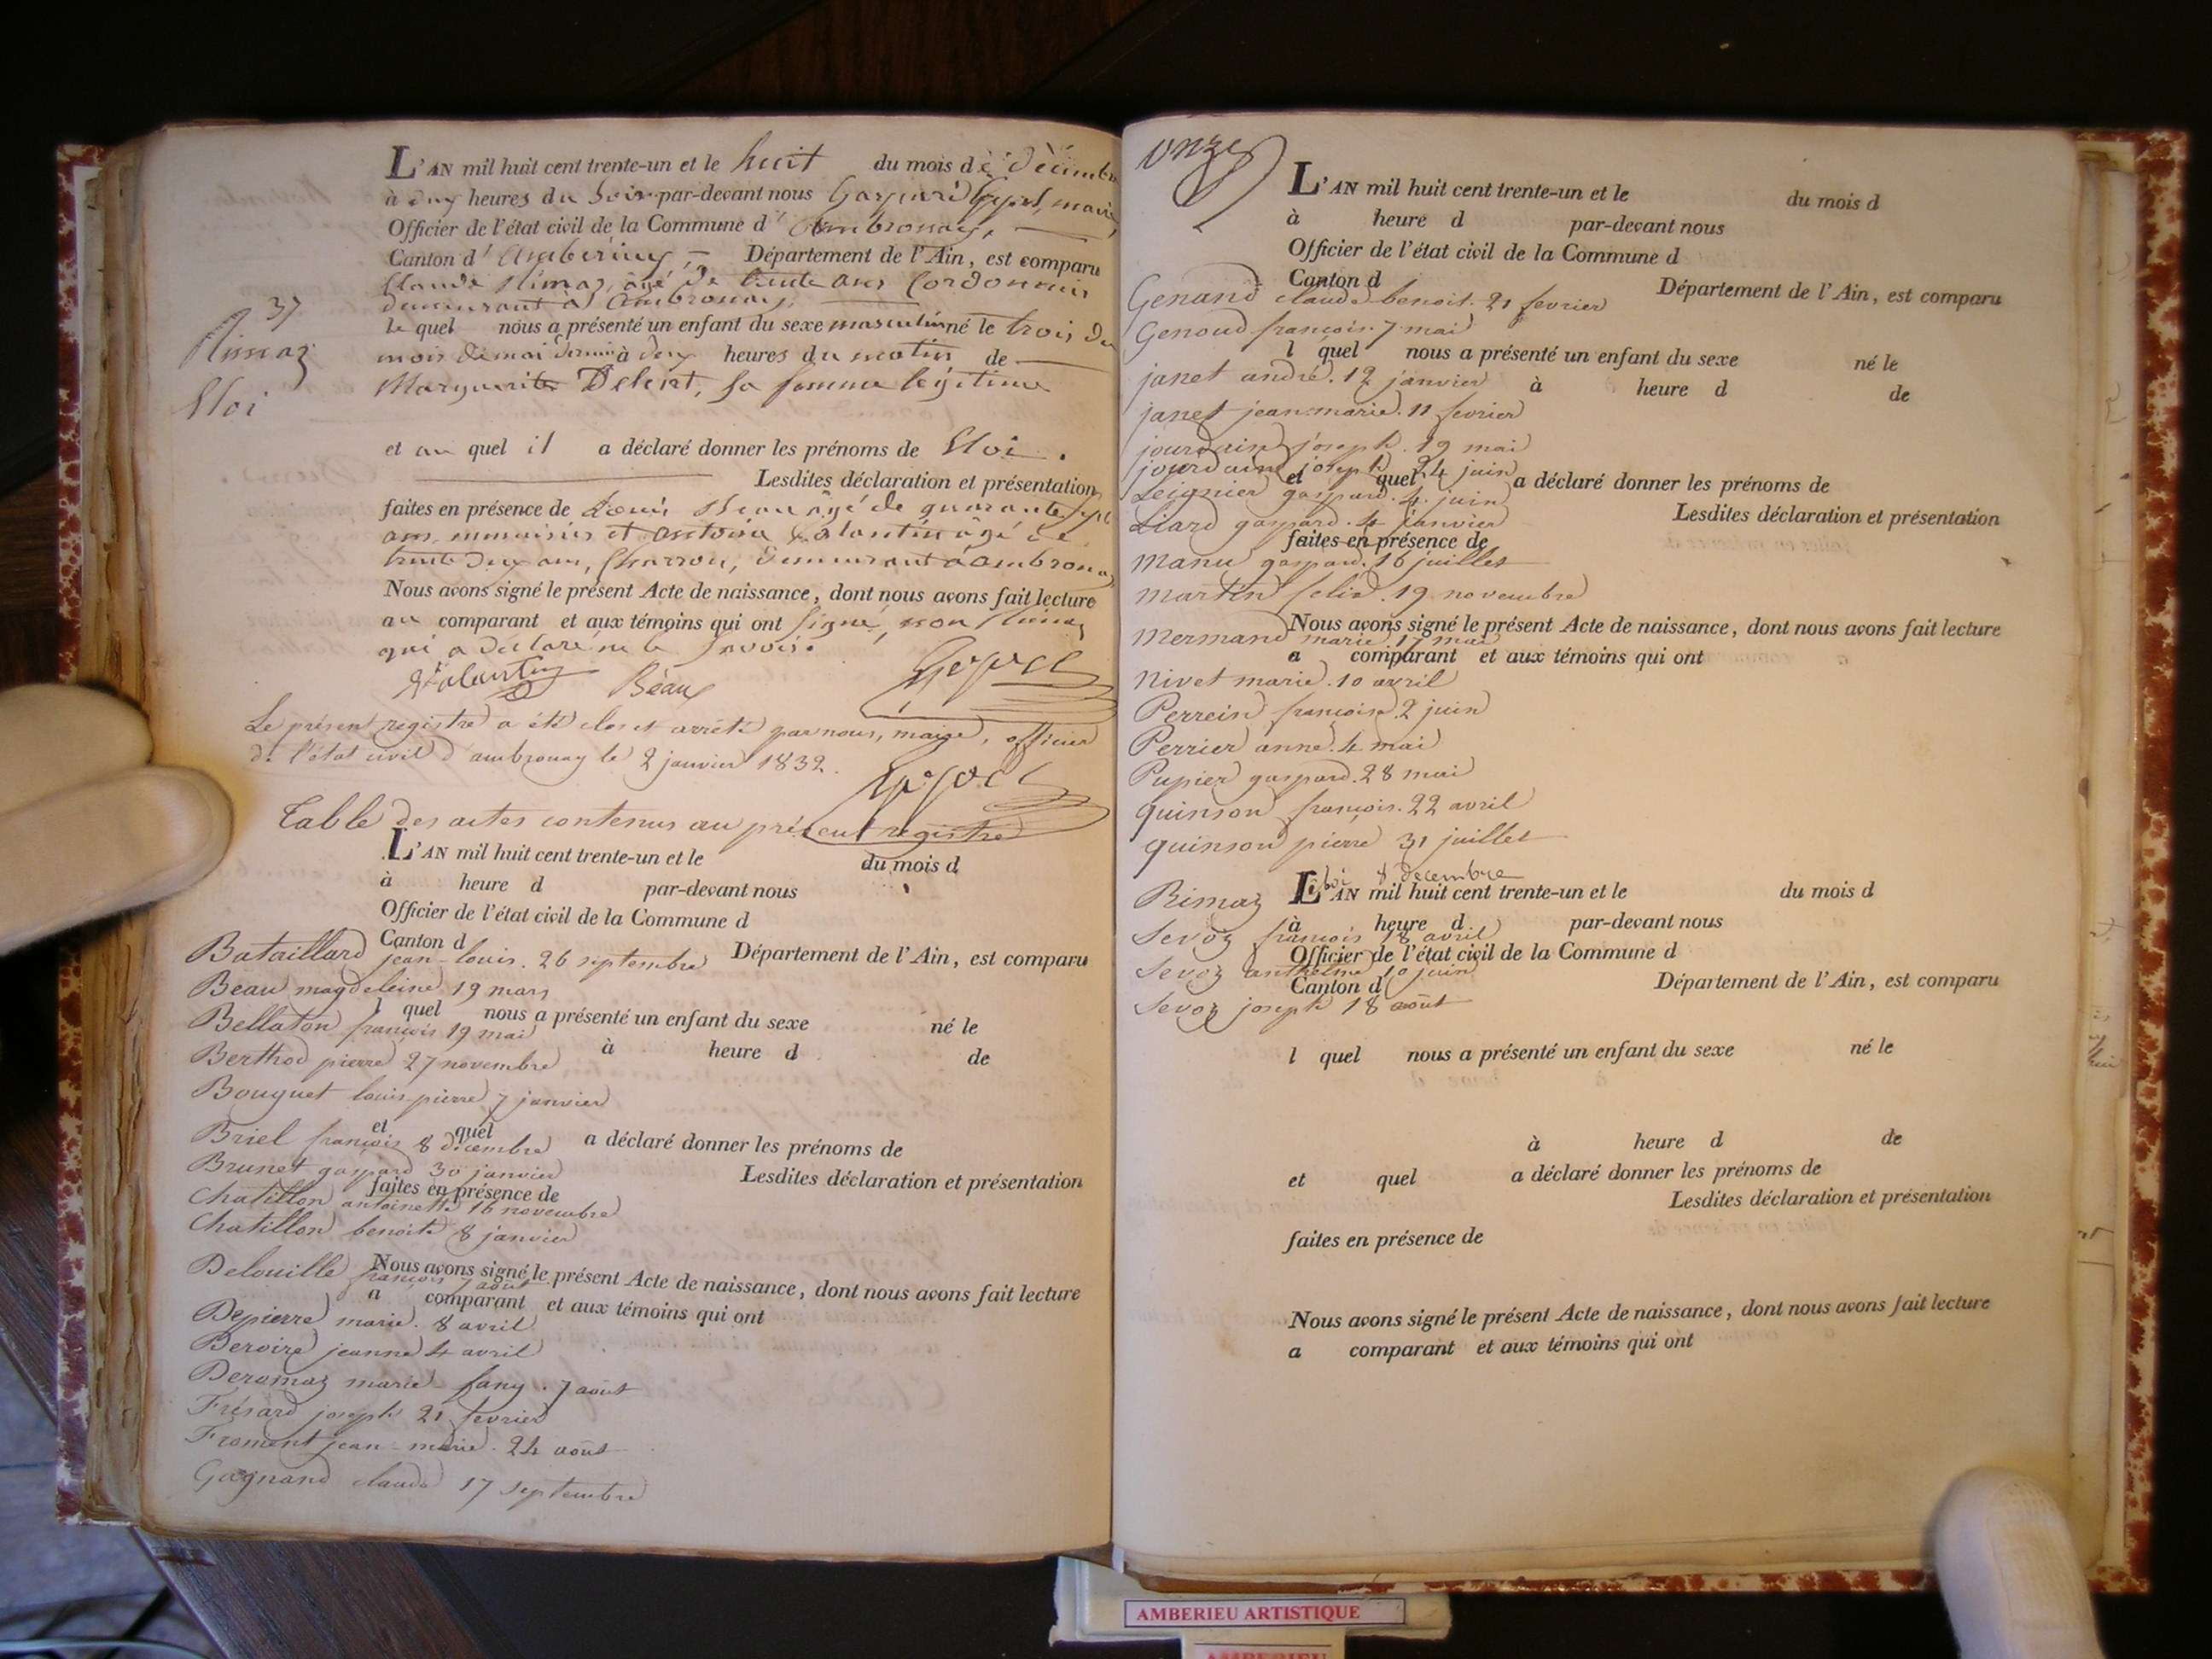 L'AN mil huit cent trente-un et le huit du mois de décembre
à deux heures du soir par-devant nous Gaspard maire
Officier de l'état civil de la Commune d'ambronay,
Canton d'ambérieux, Département de l'Ain, est comparu
Claude Rimaz, âgé de trente ans Cordonnier
demeurant à ambronay,
le quel nous a présenté un enfant du sexe masculin né le trois du
mois de mai dernier à deux heures du matin de
Marguerite sa femme légitime
37
Rimaz
Eloi
et au quel il a déclaré donner les prénoms de Eloi.
Lesdites déclaration et présentation
faites en présence de Louis Beau âgé de quarante sept
ans, menuisier et antoine valantin âgé de
trente deux ans, Charron, demeurant à ambronay
Nous avons signé le présent Acte de naissance, dont nous avons fait lecture
au comparant et aux témoins qui ont signé, non Rimaz
qui a déclaré ne le savoir.
Valantin Béau
Le présent registre a été clos et arrêté par nous, maire, officier
de l'état civil d'ambronay le 2 janvier 1832.
Table des actes contenus au présent registre
L'AN mil huit cent trente-un et le du mois d
à heure d par-devant nous
Officier de l'état civil de la Commune d
Canton d Département de l'Ain, est comparu
Bataillard jean-louis. 26 septembre
Beau magdeleine 19 mars
l quel nous a présenté un enfant du sexe né le
Bellaton françois 19 mai
à heure d de
Berthod pierre 27 novembre
Bouquet louis-pierre 7 janvier
et quel a déclaré donner les prénoms de
Briel françois 8 décembre
Brunet gaspard 30 janvier
Lesdites déclaration et présentation
faites en présence de
Chatillon antoinette 16 novembre
Chatillon benoite 8 janvier
Nous avons signé le présent Acte de naissance, dont nous avons fait lecture
Delouille françois 7 août
a comparant et aux témoins qui ont
Depierre marie. 8 avril
Deroire jeanne 4 avril
Deromaz marie-fany. 7 août
Frésard joseph 21 fevrier
Froment jean-marie. 24 août
Gagnand claude 17 septembre
onze
L'AN mil huit cent trente-un et le du mois d
à heure d par-devant nous
Officier de l'état civil de la Commune d
Canton d Département de l'Ain, est comparu
Genand claude-benoit. 21 fevrier
Genoud françois. 7 mai
l quel nous a présenté un enfant du sexe né le
janet andré. 12 janvier
à heure d de
janet jean-marie. 11 fevrier
jourdain joseph. 19 mai
jourdain joseph 24 juin
et quel a déclaré donner les prénoms de
Leignier gaspard. 4. juin
Liard gaspard. 4 janvier
Lesdites déclaration et présentation
faites en présence de
manu gaspard. 16 juillet
martin felix. 19 novembre
Nous avons signé le présent Acte de naissance, dont nous avons fait lecture
mermand marie 17 mai
a comparant et aux témoins qui ont
nivet marie. 10 avril
Perrein françoise. 2 juin
Perrier anne. 4 mai
Pupier gaspard. 28 mai
quinson françois. 22 avril
quinson pierre 31 juillet
Rimaz Eloi 8 decembre
L'AN mil huit cent trente-un et le du mois d
à heure d par-devant nous
Sevoz françois 18 avril
Officier de l'état civil de la Commune d
Sevoz anthelme 10 juin
Canton d Département de l'Ain, est comparu
Sevoz joseph 18 août
l quel nous a présenté un enfant du sexe né le
à heure d de
et quel a déclaré donner les prénoms de
Lesdites déclaration et présentation
faites en présence de
Nous avons signé le présent Acte de naissance, dont nous avons fait lecture
a comparant et aux témoins qui ont
AMBERIEU ARTISTIQUE
AMBERIEU